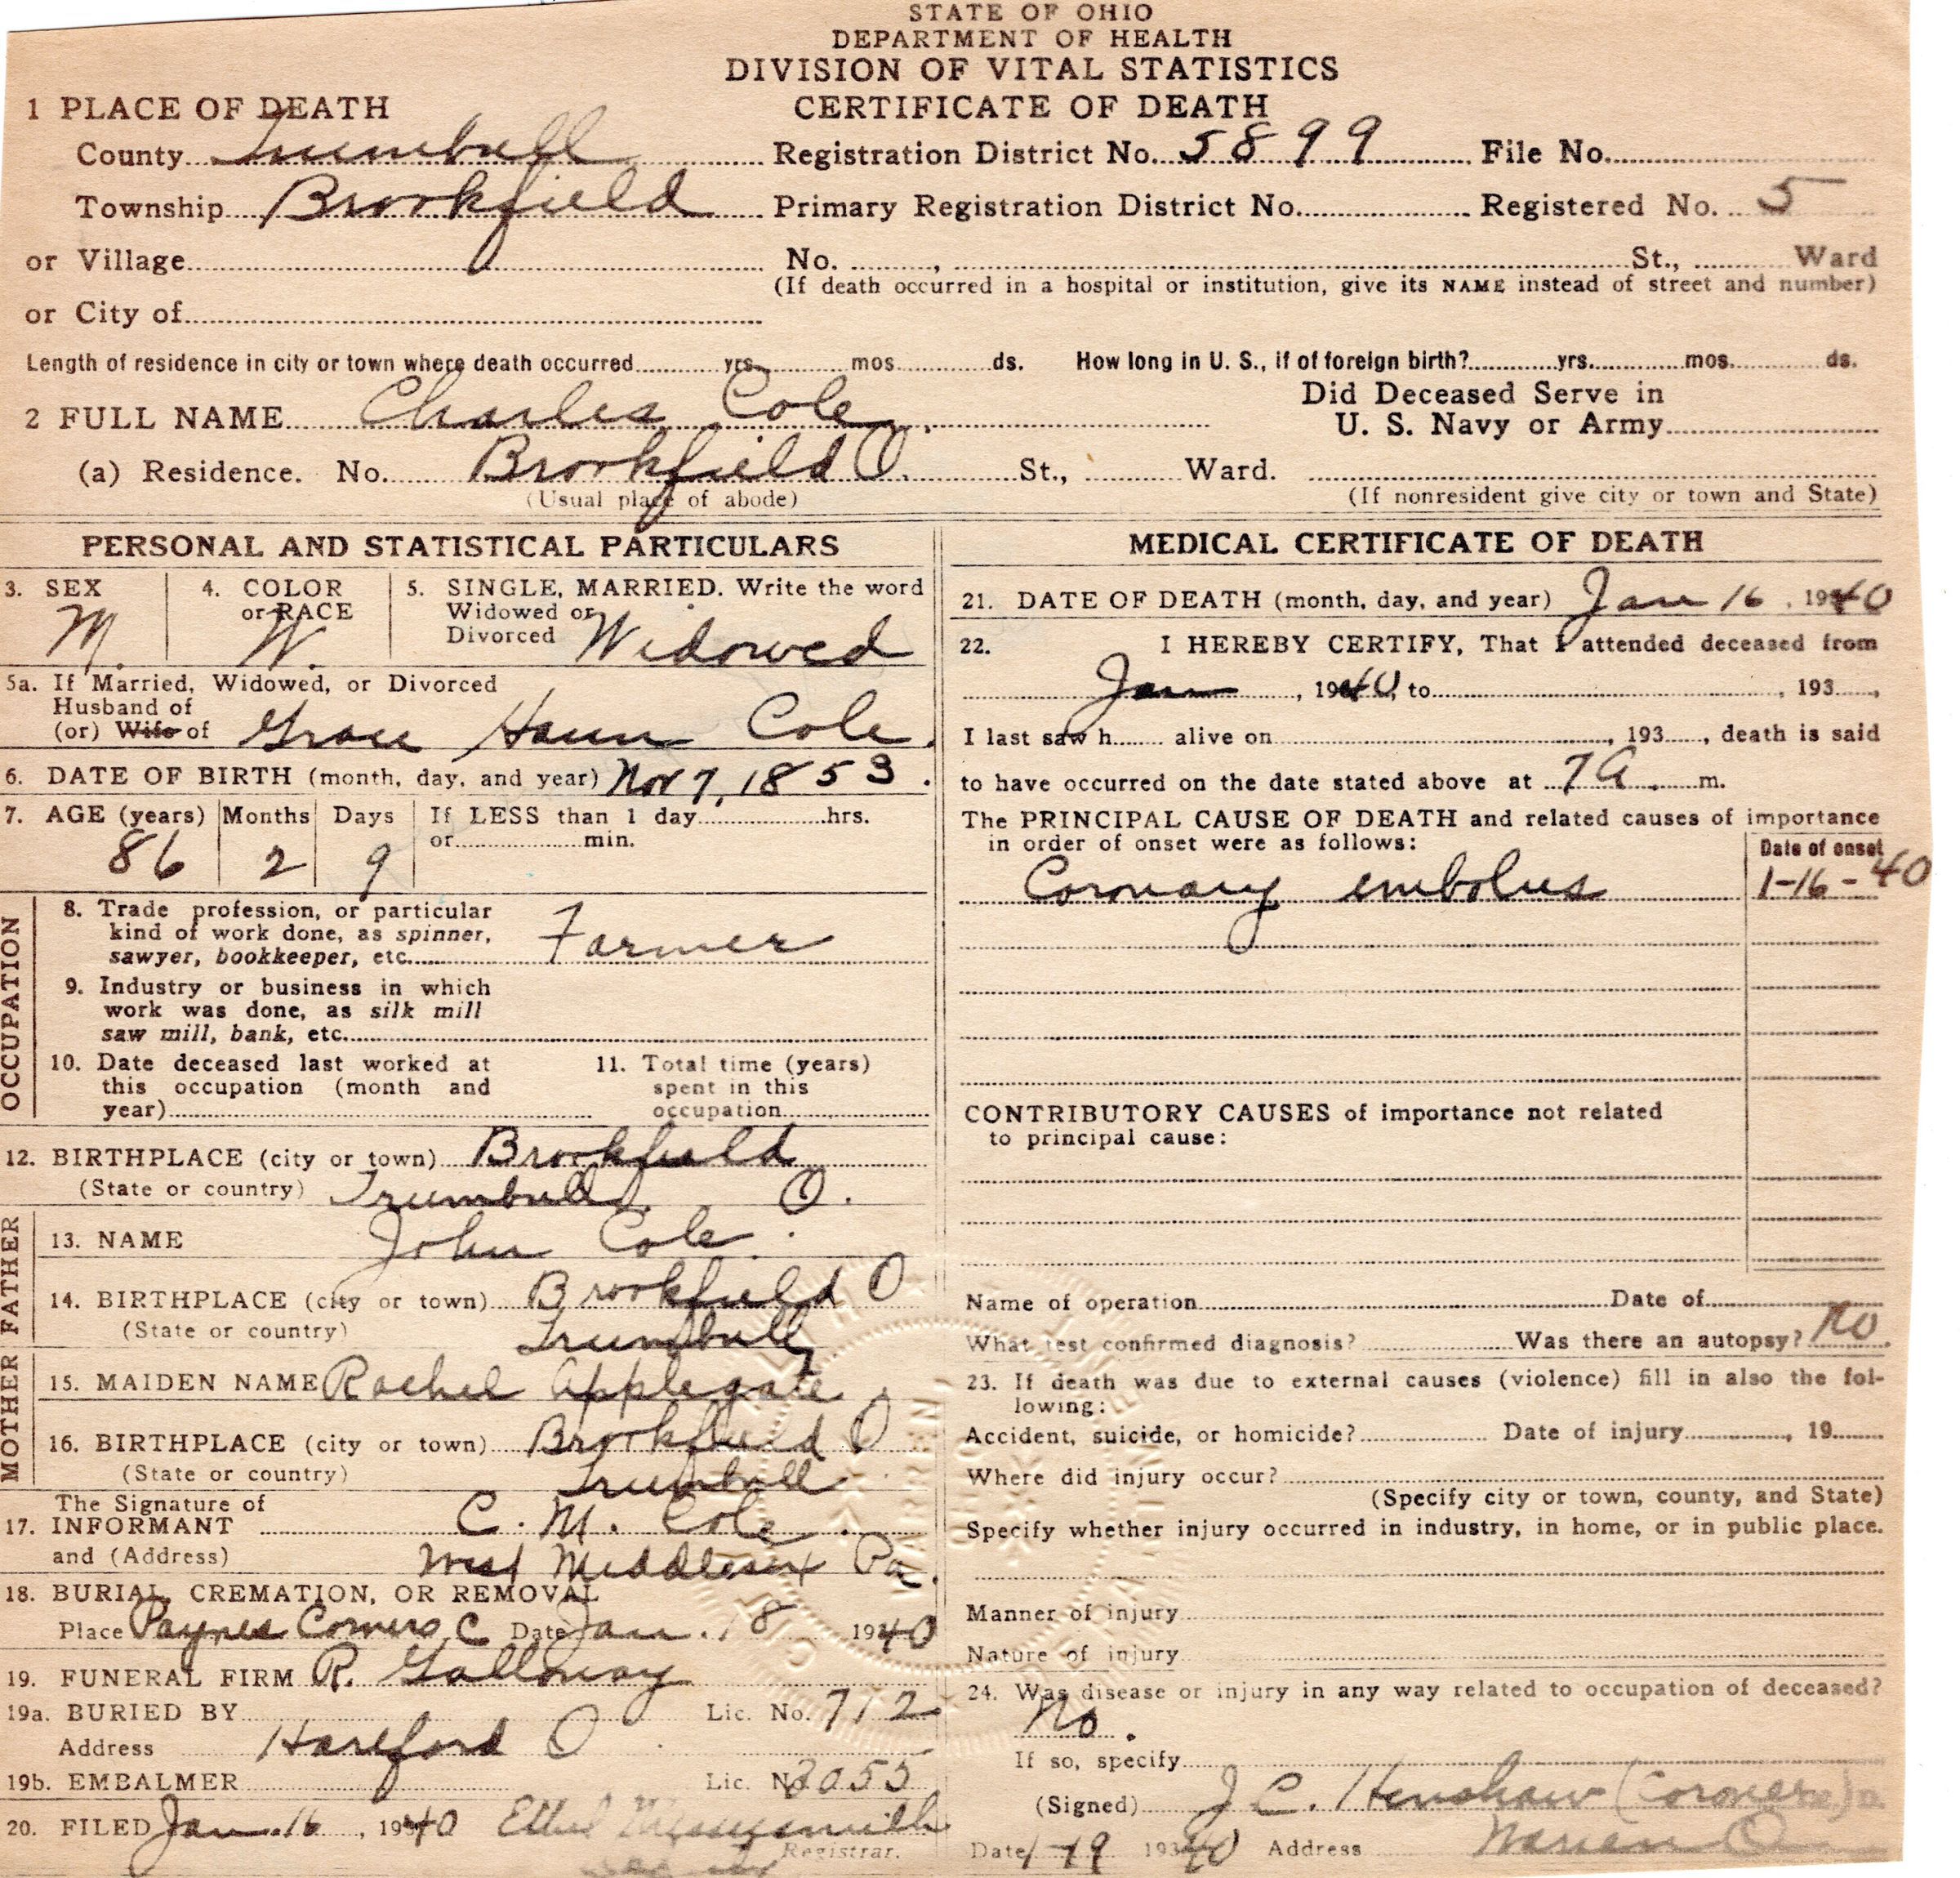 STATE OF OHIO
DEPARTMENT OF HEALTH
DIVISION OF VITAL STATISTICS
CERTIFICATE OF DEATH
1 PLACE OF DEATH
County Trumbull Registration District No. 5899 File No.
Township Brookfield Primary Registration District No. Registered No. 5
or Village No. , St., Ward
(If death occurred in a hospital or institution, give its NAME instead of street and number)
or City of
Length of residence in city or town where death occurred yrs. mos. ds. How long in U. S., if of foreign birth? yrs. mos. ds.
2 FULL NAME Charles Cole Did Deceased Serve in
U. S. Navy or Army
(a) Residence. No. Brookfield O. St., Ward.
(Usual place of abode) (If nonresident give city or town and State)
PERSONAL AND STATISTICAL PARTICULARS
3. SEX 4. COLOR or RACE 5. SINGLE, MARRIED. Write the word
Widowed or
Divorced
M. W. Widowed
5a. If Married, Widowed, or Divorced
Husband of
(or) Wife of Grace Haun Cole
6. DATE OF BIRTH (month, day, and year) Nov 7, 1853.
7. AGE (years) Months Days If LESS than 1 day hrs.
or min.
86 2 9
OCCUPATION
8. Trade profession, or particular
kind of work done, as spinner,
sawyer, bookkeeper, etc. Farmer
9. Industry or business in which
work was done, as silk mill
saw mill, bank, etc.
10. Date deceased last worked at
this occupation (month and
year)
11. Total time (years)
spent in this
occupation
12. BIRTHPLACE (city or town) Brookfield
(State or country) Trumbull O.
FATHER
13. NAME John Cole
14. BIRTHPLACE (city or town) Brookfield O
(State or country) Trumbull
MOTHER
15. MAIDEN NAME Rachel Applegate
16. BIRTHPLACE (city or town) Brookfield O
(State or country) Trumbull
The Signature of
17. INFORMANT C. M. Cole
and (Address) West Middlesex Pa.
18. BURIAL, CREMATION, OR REMOVAL
Place Paynes Corners C Date Jan. 18 1940
19. FUNERAL FIRM R. Galloway
19a. BURIED BY Lic. No. 712
Address Hartford O
19b. EMBALMER Lic. No. 3055
20. FILED Jan. 16, 1940 Ethel
Registrar.
MEDICAL CERTIFICATE OF DEATH
21. DATE OF DEATH (month, day, and year) Jan 16, 1940
22. I HEREBY CERTIFY, That I attended deceased from
Jan , 1940, to , 193 ,
I last saw h alive on , 193 , death is said
to have occurred on the date stated above at 7 A. m.
The PRINCIPAL CAUSE OF DEATH and related causes of importance
in order of onset were as follows: Date of onset
Coronary embolus 1-16-40
CONTRIBUTORY CAUSES of importance not related
to principal cause:
Name of operation Date of
What test confirmed diagnosis? Was there an autopsy? No.
23. If death was due to external causes (violence) fill in also the fol-
lowing:
Accident, suicide, or homicide? Date of injury , 19
Where did injury occur?
(Specify city or town, county, and State)
Specify whether injury occurred in industry, in home, or in public place.
Manner of injury
Nature of injury
24. Was disease or injury in any way related to occupation of deceased?
No.
If so, specify
(Signed) J C. Henshaw (Coroner)
Date 1-19 1940 Address Warren O